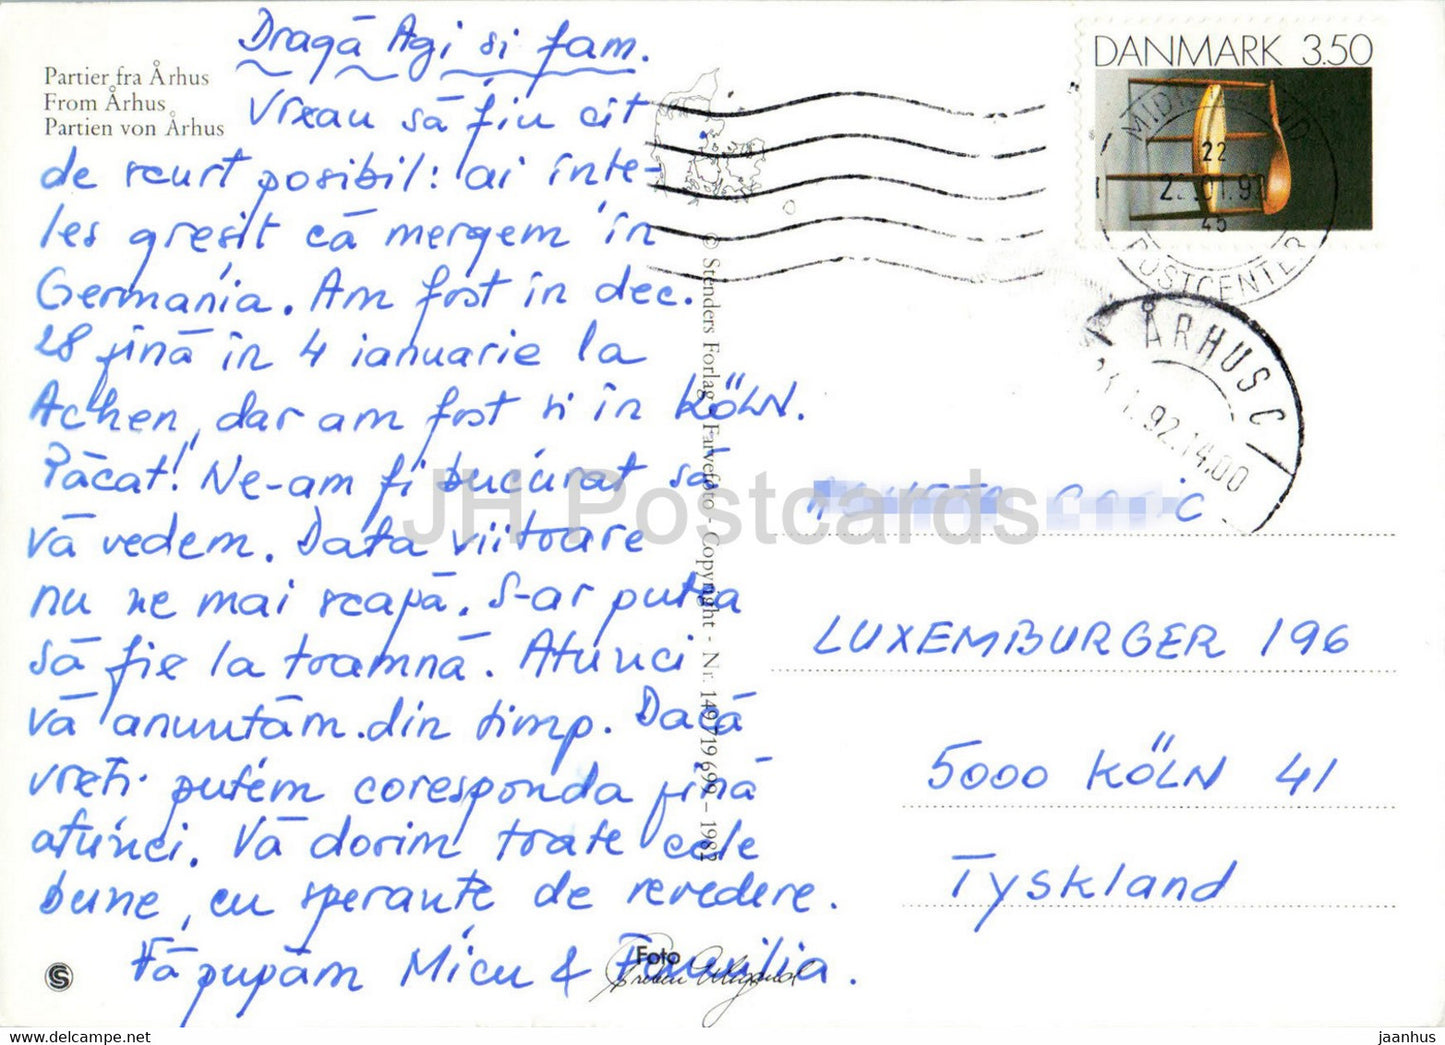 Dragă Agi si fam.
Partier fra Århus
From Århus
Partien von Århus
Vreau să fiu cit
de scurt posibil: ai înțe-
les greșit că mergem în
Germania. Am fost în dec.
28 pînă în 4 ianuarie la
Achen, dar am fost si în KÖLN.
Păcat! Ne-am fi bucurat să
vă vedem. Data viitoare
nu ne mai scapă. S-ar putea
să fie la toamnă. Atunci
vă anunțăm din timp. Dacă
vreți putem coresponda pînă
atunci. Vă dorim toate cele
bune, cu speranțe de revedere.
Vă pupăm Micu & Familia.
Foto
S
© Stenders Forlag Farvefoto - Copyright - Nr. 149719699 - 1982
DANMARK 3.50
22
45
POSTCENTER
ÅRHUS C
1.92.14.00
LUXEMBURGER 196
5000 KÖLN 41
Tyskland
JH Postcards
https://www.ebay.com/str/jhpostcards
jaanhus